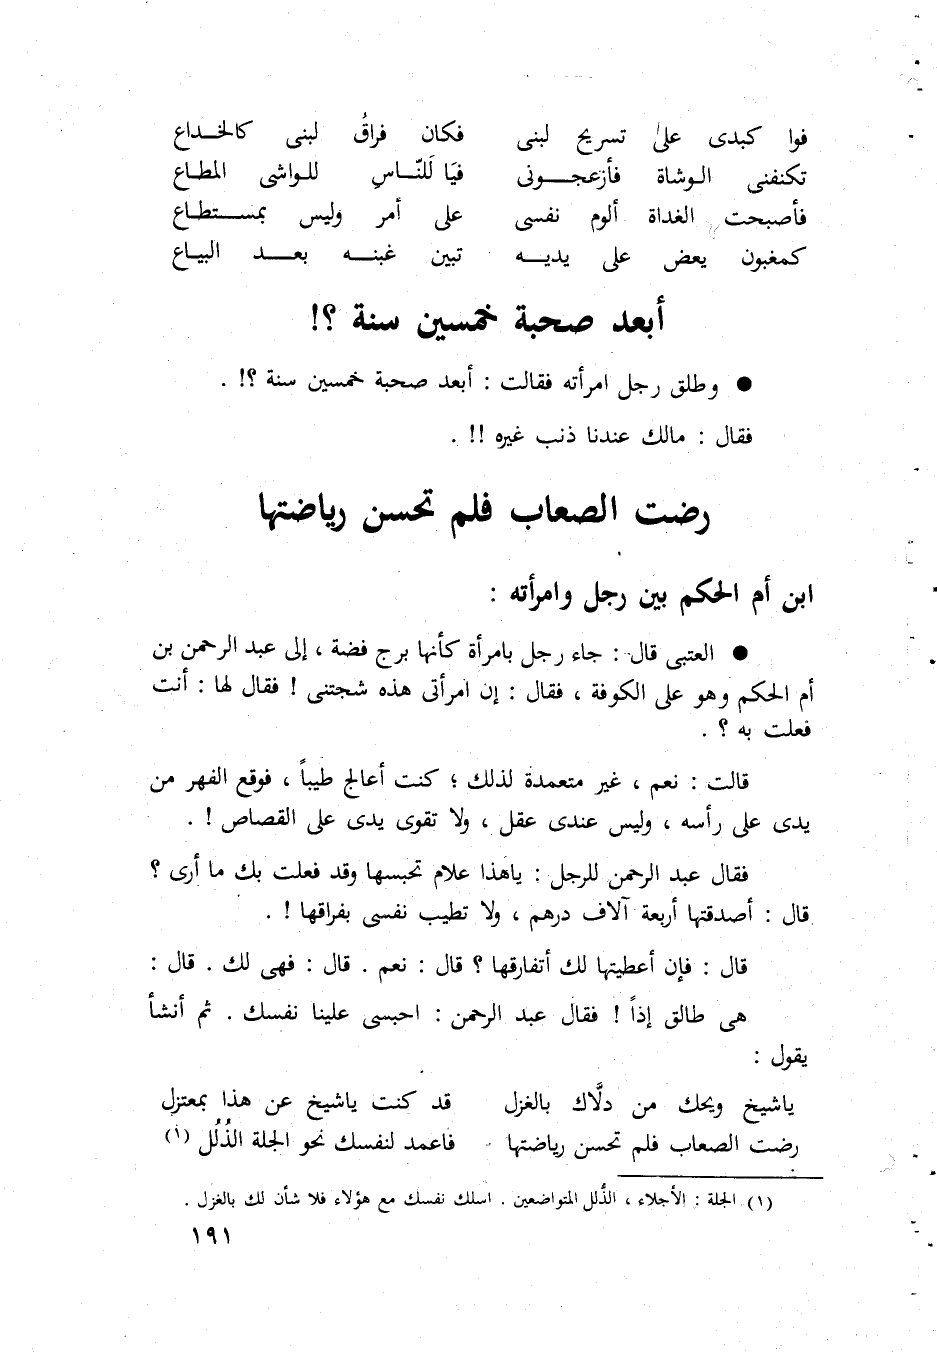 فوا كبدى علىٰ تسريح لبنى فكان فراقُ لبنى كالخـــداع
تكنفنى الـوشاة فأزعجـــونى فيَا لَلنّـــاسِ للـواشى المطـاع
فأصبحت الغداة ألوم نفسى على أمر وليس بمـــستطـاع
كمغبون يعض على يديـــه تبين غبنـــه بعـــد البيـاع
أبعد صحبة خمسين سنة ؟!
● وطلق رجل امرأته فقالت : أبعد صحبة خمسين سنة ؟! .
فقال : مالك عندنا ذنب غيره !! .
رضت الصعاب فلم تحسن رياضتها
ابن أم الحكم بين رجل وامرأته :
● العتبى قال : جاء رجل بامرأة كأنها برج فضة ، إلى عبد الرحمن بن
أم الحكم وهو على الكوفة ، فقال : إن امرأتى هذه شجتنى ! فقال لها : أنت
فعلت به ؟ .
قالت : نعم ، غير متعمدة لذلك ؛ كنت أعالج طيباً ، فوقع الفهر من
يدى على رأسه ، وليس عندى عقل ، ولا تقوى يدى على القصاص ! .
فقال عبد الرحمن للرجل : ياهذا علام تحبسها وقد فعلت بك ما أرى ؟
قال : أصدقتها أربعة آلاف درهم ، ولا تطيب نفسى بفراقها ! .
قال : فإن أعطيتها لك أتفارقها ؟ قال : نعم . قال : فهى لك . قال :
هى طالق إذاً ! فقال عبد الرحمن : احبسى علينا نفسك . ثم أنشأ
يقول :
ياشيخ ويحك من دلَّاك بالغزل قد كنت ياشيخ عن هذا بمعتزل
رضت الصعاب فلم تحسن رياضتها فاعمد لنفسك نحو الجلة الذُلُل (١)
(١) الجلة : الأجلاء ، الذُّلل المتواضعين . اسلك نفسك مع هؤلاء فلا شأن لك بالغزل .
١٩١